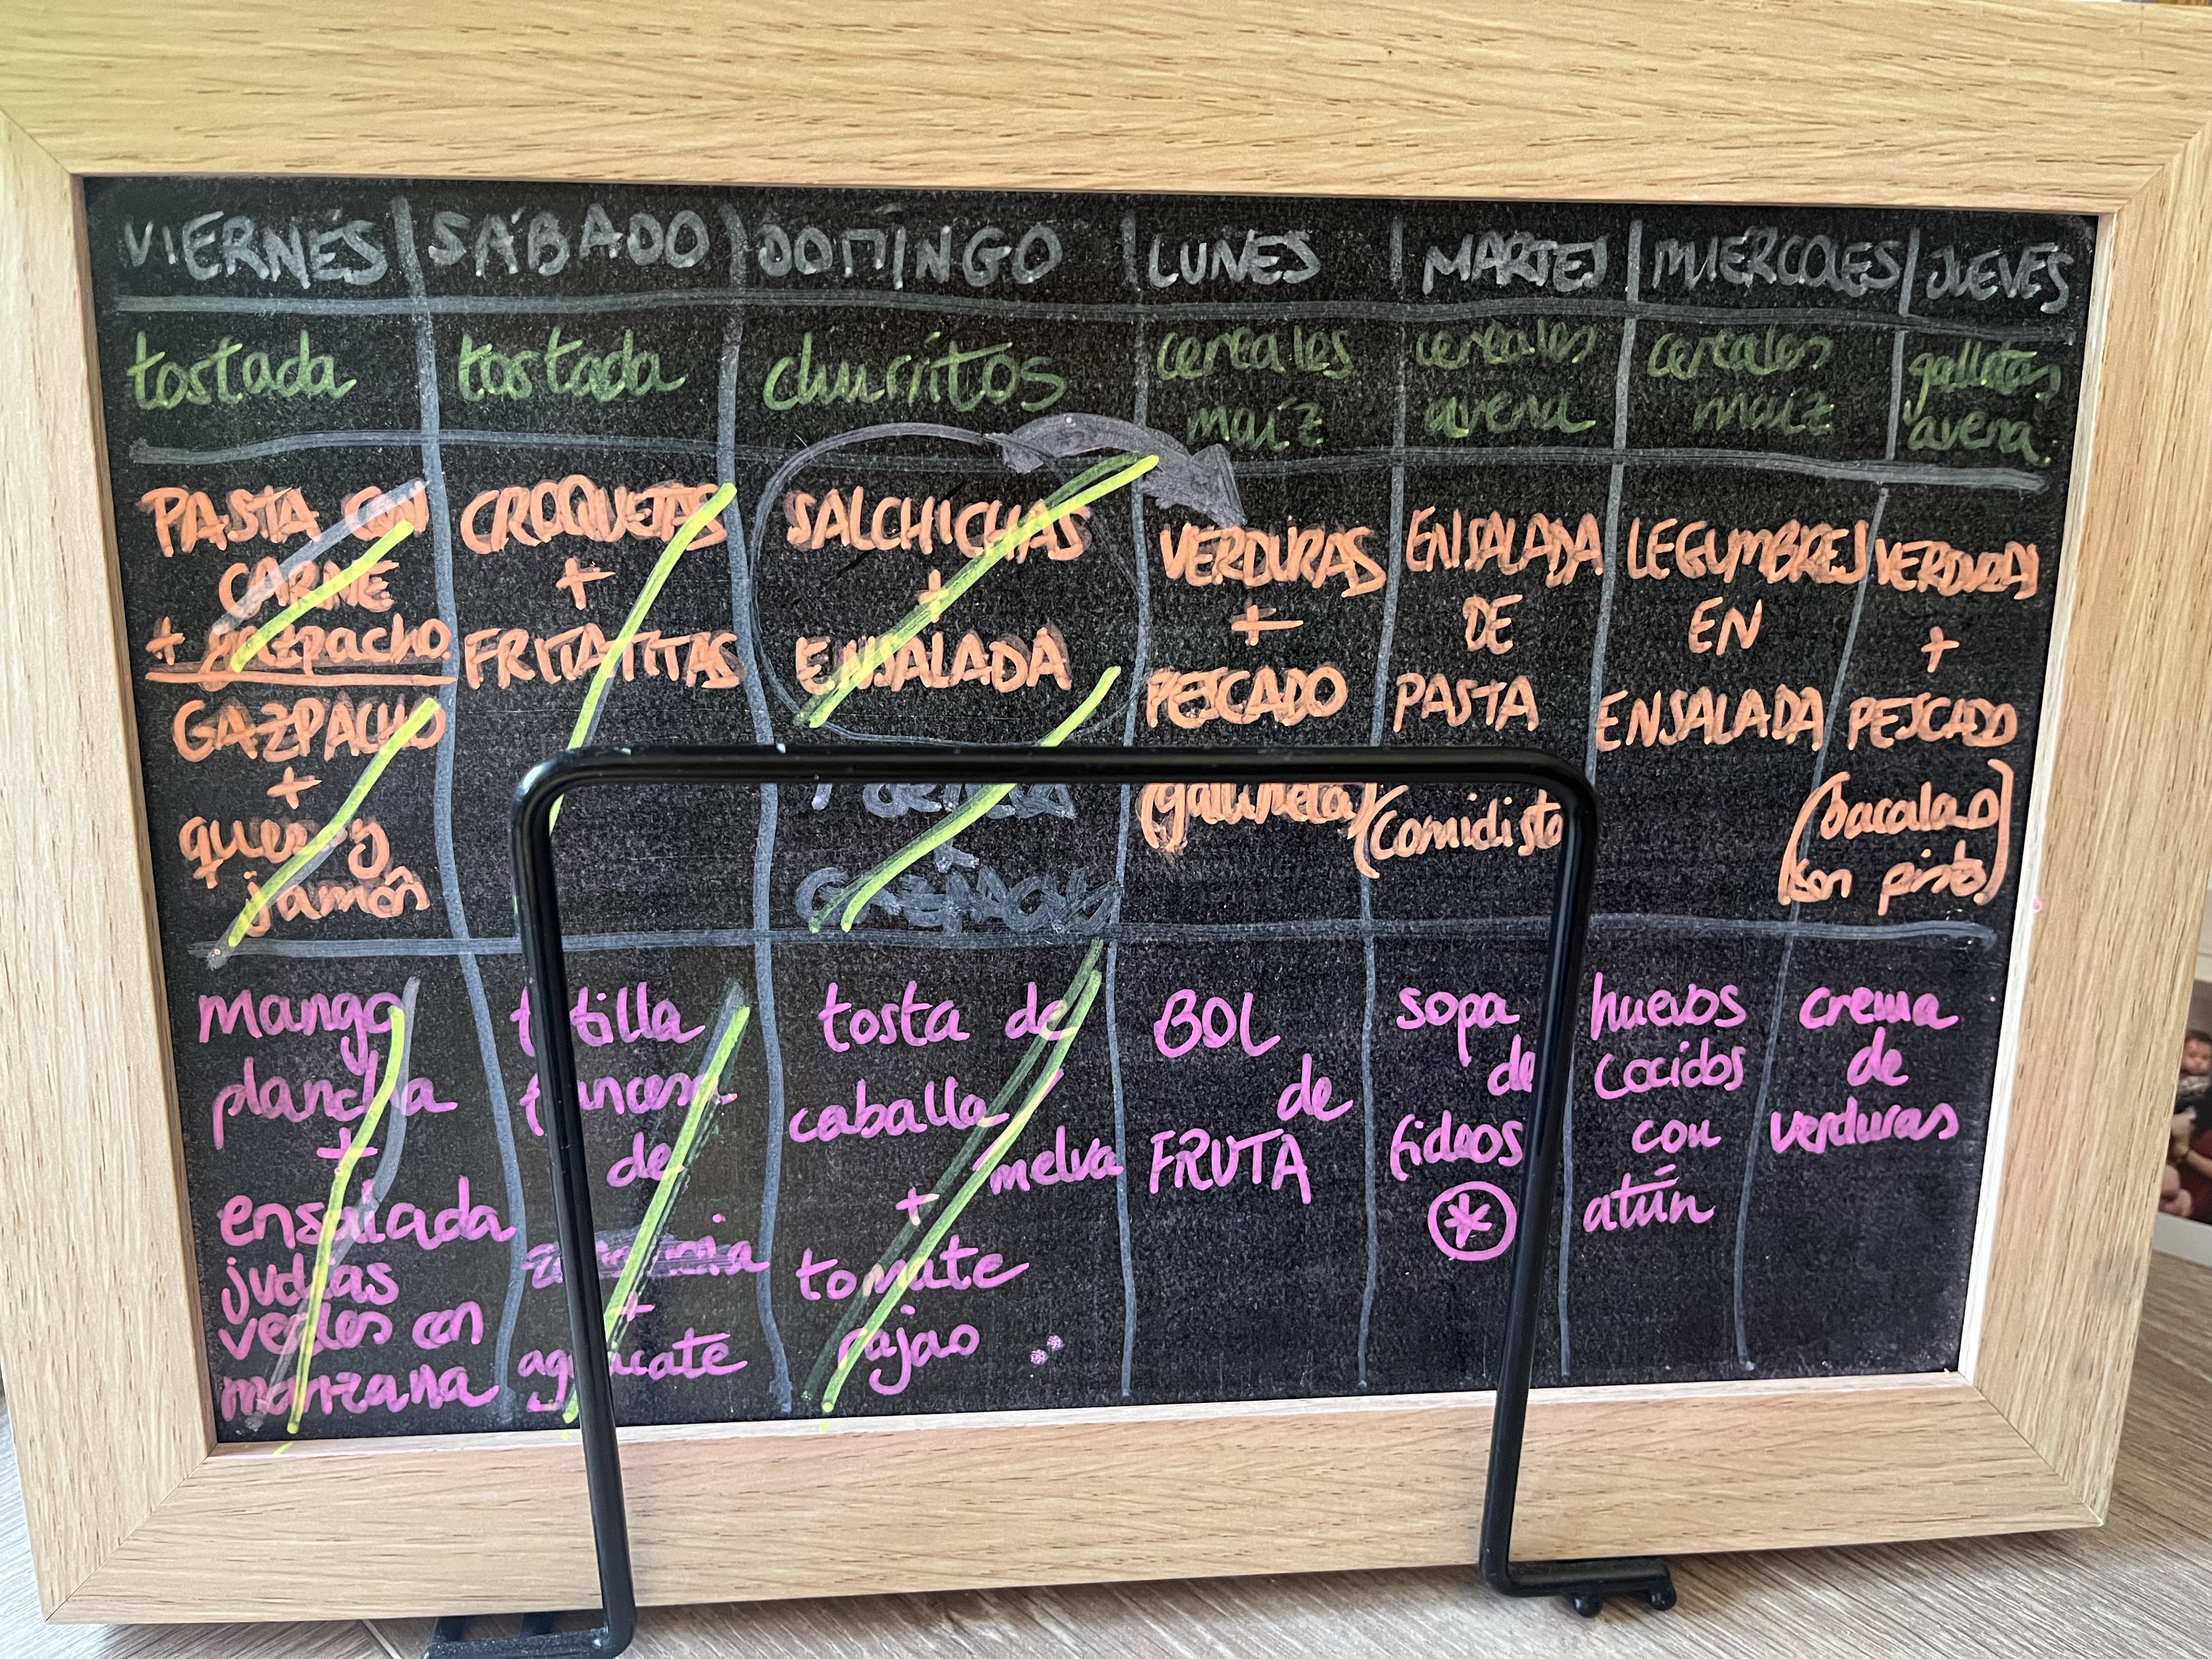 VIERNES SÁBADO DOMINGO LUNES MARTES MIERCOLES JUEVES
tostada tostada churritos cereales maíz cereales avena cereales maíz galletas avena
PASTA CON
CARNE
+ gazpacho
GAZPACHO
+
queso y
jamón
CROQUETAS
+
FRITATITAS
SALCHICHAS
+
ENSALADA
VERDURAS
+
PESCADO
(gallineta)
ENSALADA
DE
PASTA
(comidista
LEGUMBRES
EN
ENSALADA
VERDURAS
+
PESCADO
(bacalao
con pisto)
mango
plancha
+
ensalada
judías
verdes con
manzana
tortilla
francesa
de
+
aguacate
tosta de
caballa
melva
+
tomate
rajao
BOL
de
FRUTA
sopa
de
fideos
*
huevos
cocidos
con
atún
crema
de
verduras